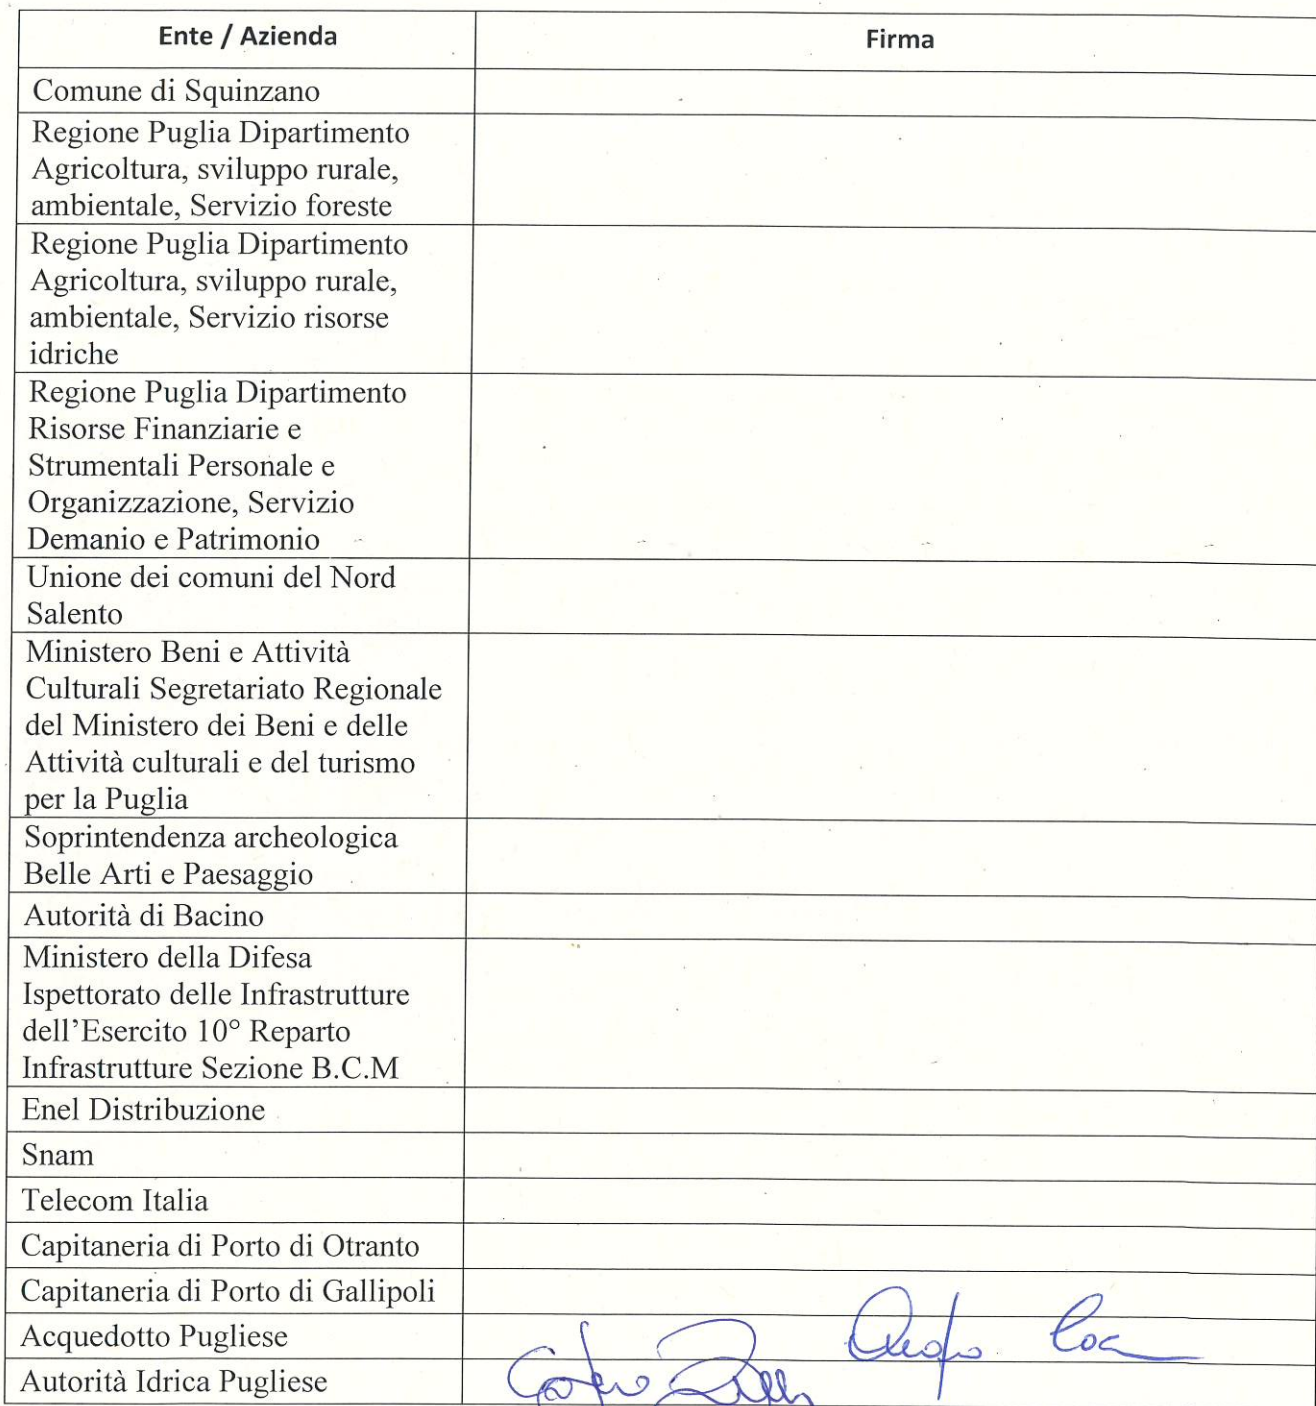 Ente / Azienda
Firma
Comune di Squinzano
Regione Puglia Dipartimento
Agricoltura, sviluppo rurale,
ambientale, Servizio foreste
Regione Puglia Dipartimento
Agricoltura, sviluppo rurale,
ambientale, Servizio risorse
idriche
Regione Puglia Dipartimento
Risorse Finanziarie e
Strumentali Personale e
Organizzazione, Servizio
Demanio e Patrimonio
Unione dei comuni del Nord
Salento
Ministero Beni e Attività
Culturali Segretariato Regionale
del Ministero dei Beni e delle
Attività culturali e del turismo
per la Puglia
Soprintendenza archeologica
Belle Arti e Paesaggio
Autorità di Bacino
Ministero della Difesa
Ispettorato delle Infrastrutture
dell’Esercito 10° Reparto
Infrastrutture Sezione B.C.M
Enel Distribuzione
Snam
Telecom Italia
Capitaneria di Porto di Otranto
Capitaneria di Porto di Gallipoli
Acquedotto Pugliese
Autorità Idrica Pugliese